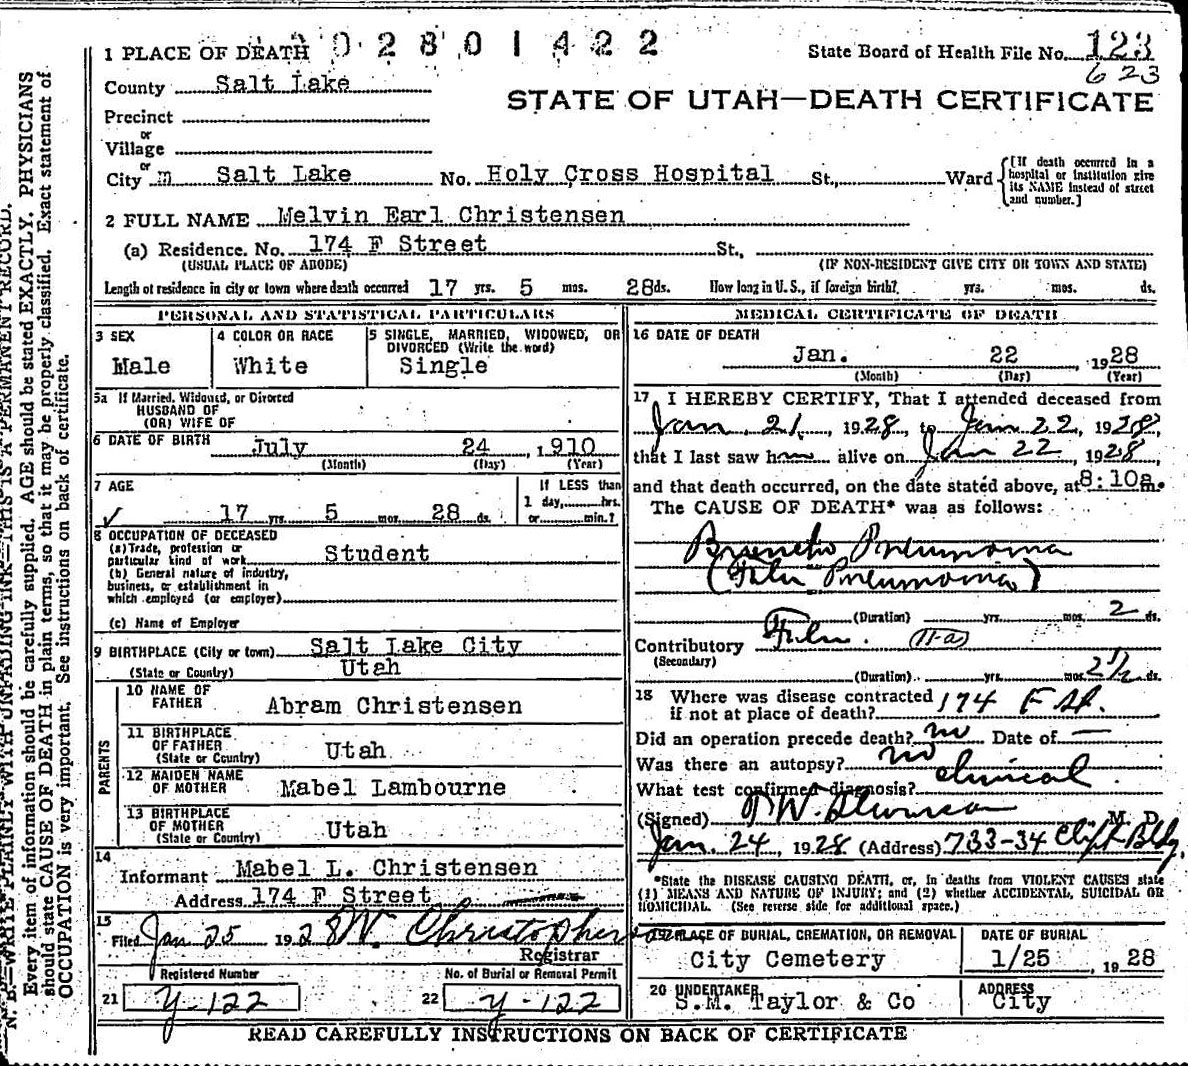 1 PLACE OF DEATH
2 8 0 1 4 2 2
State Board of Health File No. 123
623
County Salt Lake
STATE OF UTAH—DEATH CERTIFICATE
Precinct
or
Village
or
City m Salt Lake No. Holy Cross Hospital St., Ward
[If death occurred in a
hospital or institution give
its NAME instead of street
and number.]
2 FULL NAME Melvin Earl Christensen
(a) Residence. No. 174 F Street St.,
(USUAL PLACE OF ABODE) (IF NON-RESIDENT GIVE CITY OR TOWN AND STATE)
Length of residence in city or town where death occurred 17 yrs. 5 mos. 28 ds. How long in U.S., if foreign birth? yrs. mos. ds.
PERSONAL AND STATISTICAL PARTICULARS
3 SEX
Male
4 COLOR OR RACE
White
5 SINGLE, MARRIED, WIDOWED, OR
DIVORCED (Write the word)
Single
5a If Married, Widowed, or Divorced
HUSBAND OF
(OR) WIFE OF
6 DATE OF BIRTH July 24 , 1910
(Month) (Day) (Year)
7 AGE
17 yrs. 5 mos. 28 ds.
If LESS than
1 day, hrs.
or min.?
8 OCCUPATION OF DECEASED
(a) Trade, profession or
particular kind of work Student
(b) General nature of industry,
business, or establishment in
which employed (or employer)
(c) Name of Employer
9 BIRTHPLACE (City or town) Salt Lake City
(State or Country) Utah
PARENTS
10 NAME OF
FATHER Abram Christensen
11 BIRTHPLACE
OF FATHER
(State or Country) Utah
12 MAIDEN NAME
OF MOTHER Mabel Lambourne
13 BIRTHPLACE
OF MOTHER
(State or Country) Utah
14
Informant Mabel L. Christensen
Address 174 F Street
15
Filed Jan 25 1928 W. Christopherson
Registrar
Registered Number
21 Y-122
No. of Burial or Removal Permit
22 Y-122
MEDICAL CERTIFICATE OF DEATH
16 DATE OF DEATH
Jan. 22 , 1928
(Month) (Day) (Year)
17 I HEREBY CERTIFY, That I attended deceased from
Jan. 21, 1928, to Jan 22, 1928,
that I last saw him alive on Jan 22, 1928,
and that death occurred, on the date stated above, at 8:10a m.
The CAUSE OF DEATH* was as follows:
Broncho Pneumonia
(Flu Pneumonia)
(Duration) yrs. mos. 2 ds.
Contributory Flu. (11-a)
(Secondary)
(Duration) yrs. mos. 2½ ds.
18 Where was disease contracted
if not at place of death? 174 F St.
Did an operation precede death? no Date of —
Was there an autopsy? no
What test confirmed diagnosis? clinical
(Signed) M. D.
Jan. 24, 1928 (Address) 733-34 Clift Bldg.
*State the DISEASE CAUSING DEATH, or, in deaths from VIOLENT CAUSES state
(1) MEANS AND NATURE OF INJURY; and (2) whether ACCIDENTAL, SUICIDAL OR
HOMICIDAL. (See reverse side for additional space.)
19 PLACE OF BURIAL, CREMATION, OR REMOVAL
City Cemetery
DATE OF BURIAL
1/25 , 1928
20 UNDERTAKER
S.M. Taylor & Co
ADDRESS
City
READ CAREFULLY INSTRUCTIONS ON BACK OF CERTIFICATE
N. B.—WRITE PLAINLY WITH UNFADING INK—THIS IS A PERMANENT RECORD.
Every item of information should be carefully supplied. AGE should be stated EXACTLY. PHYSICIANS
should state CAUSE OF DEATH in plain terms, so that it may be properly classified. Exact statement of
OCCUPATION is very important. See instructions on back of certificate.